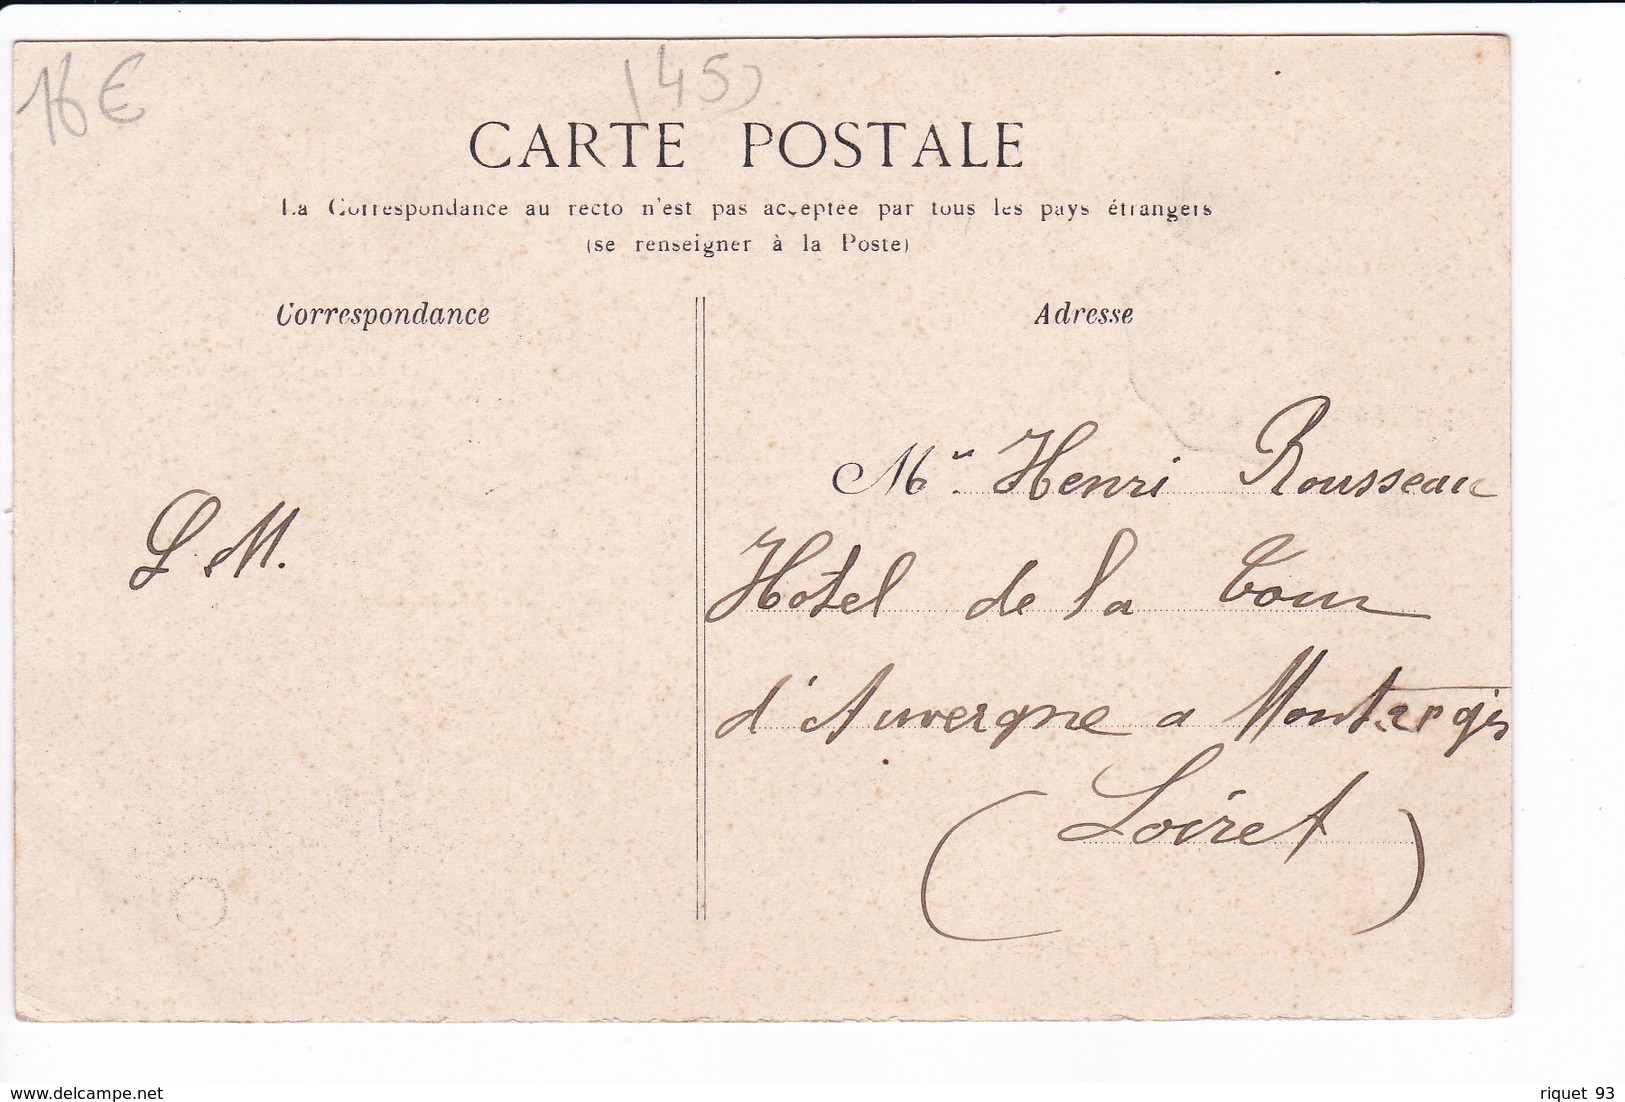 16€
(45)
CARTE POSTALE
La Correspondance au recto n'est pas acceptée par tous les pays étrangers
(se renseigner à la Poste)
Correspondance
Adresse
Mr. Henri Rousseau
L.M.
Hôtel de la Tour
d'Auvergne a Montargis
(Loiret)
www.delcampe.net
riquet 93